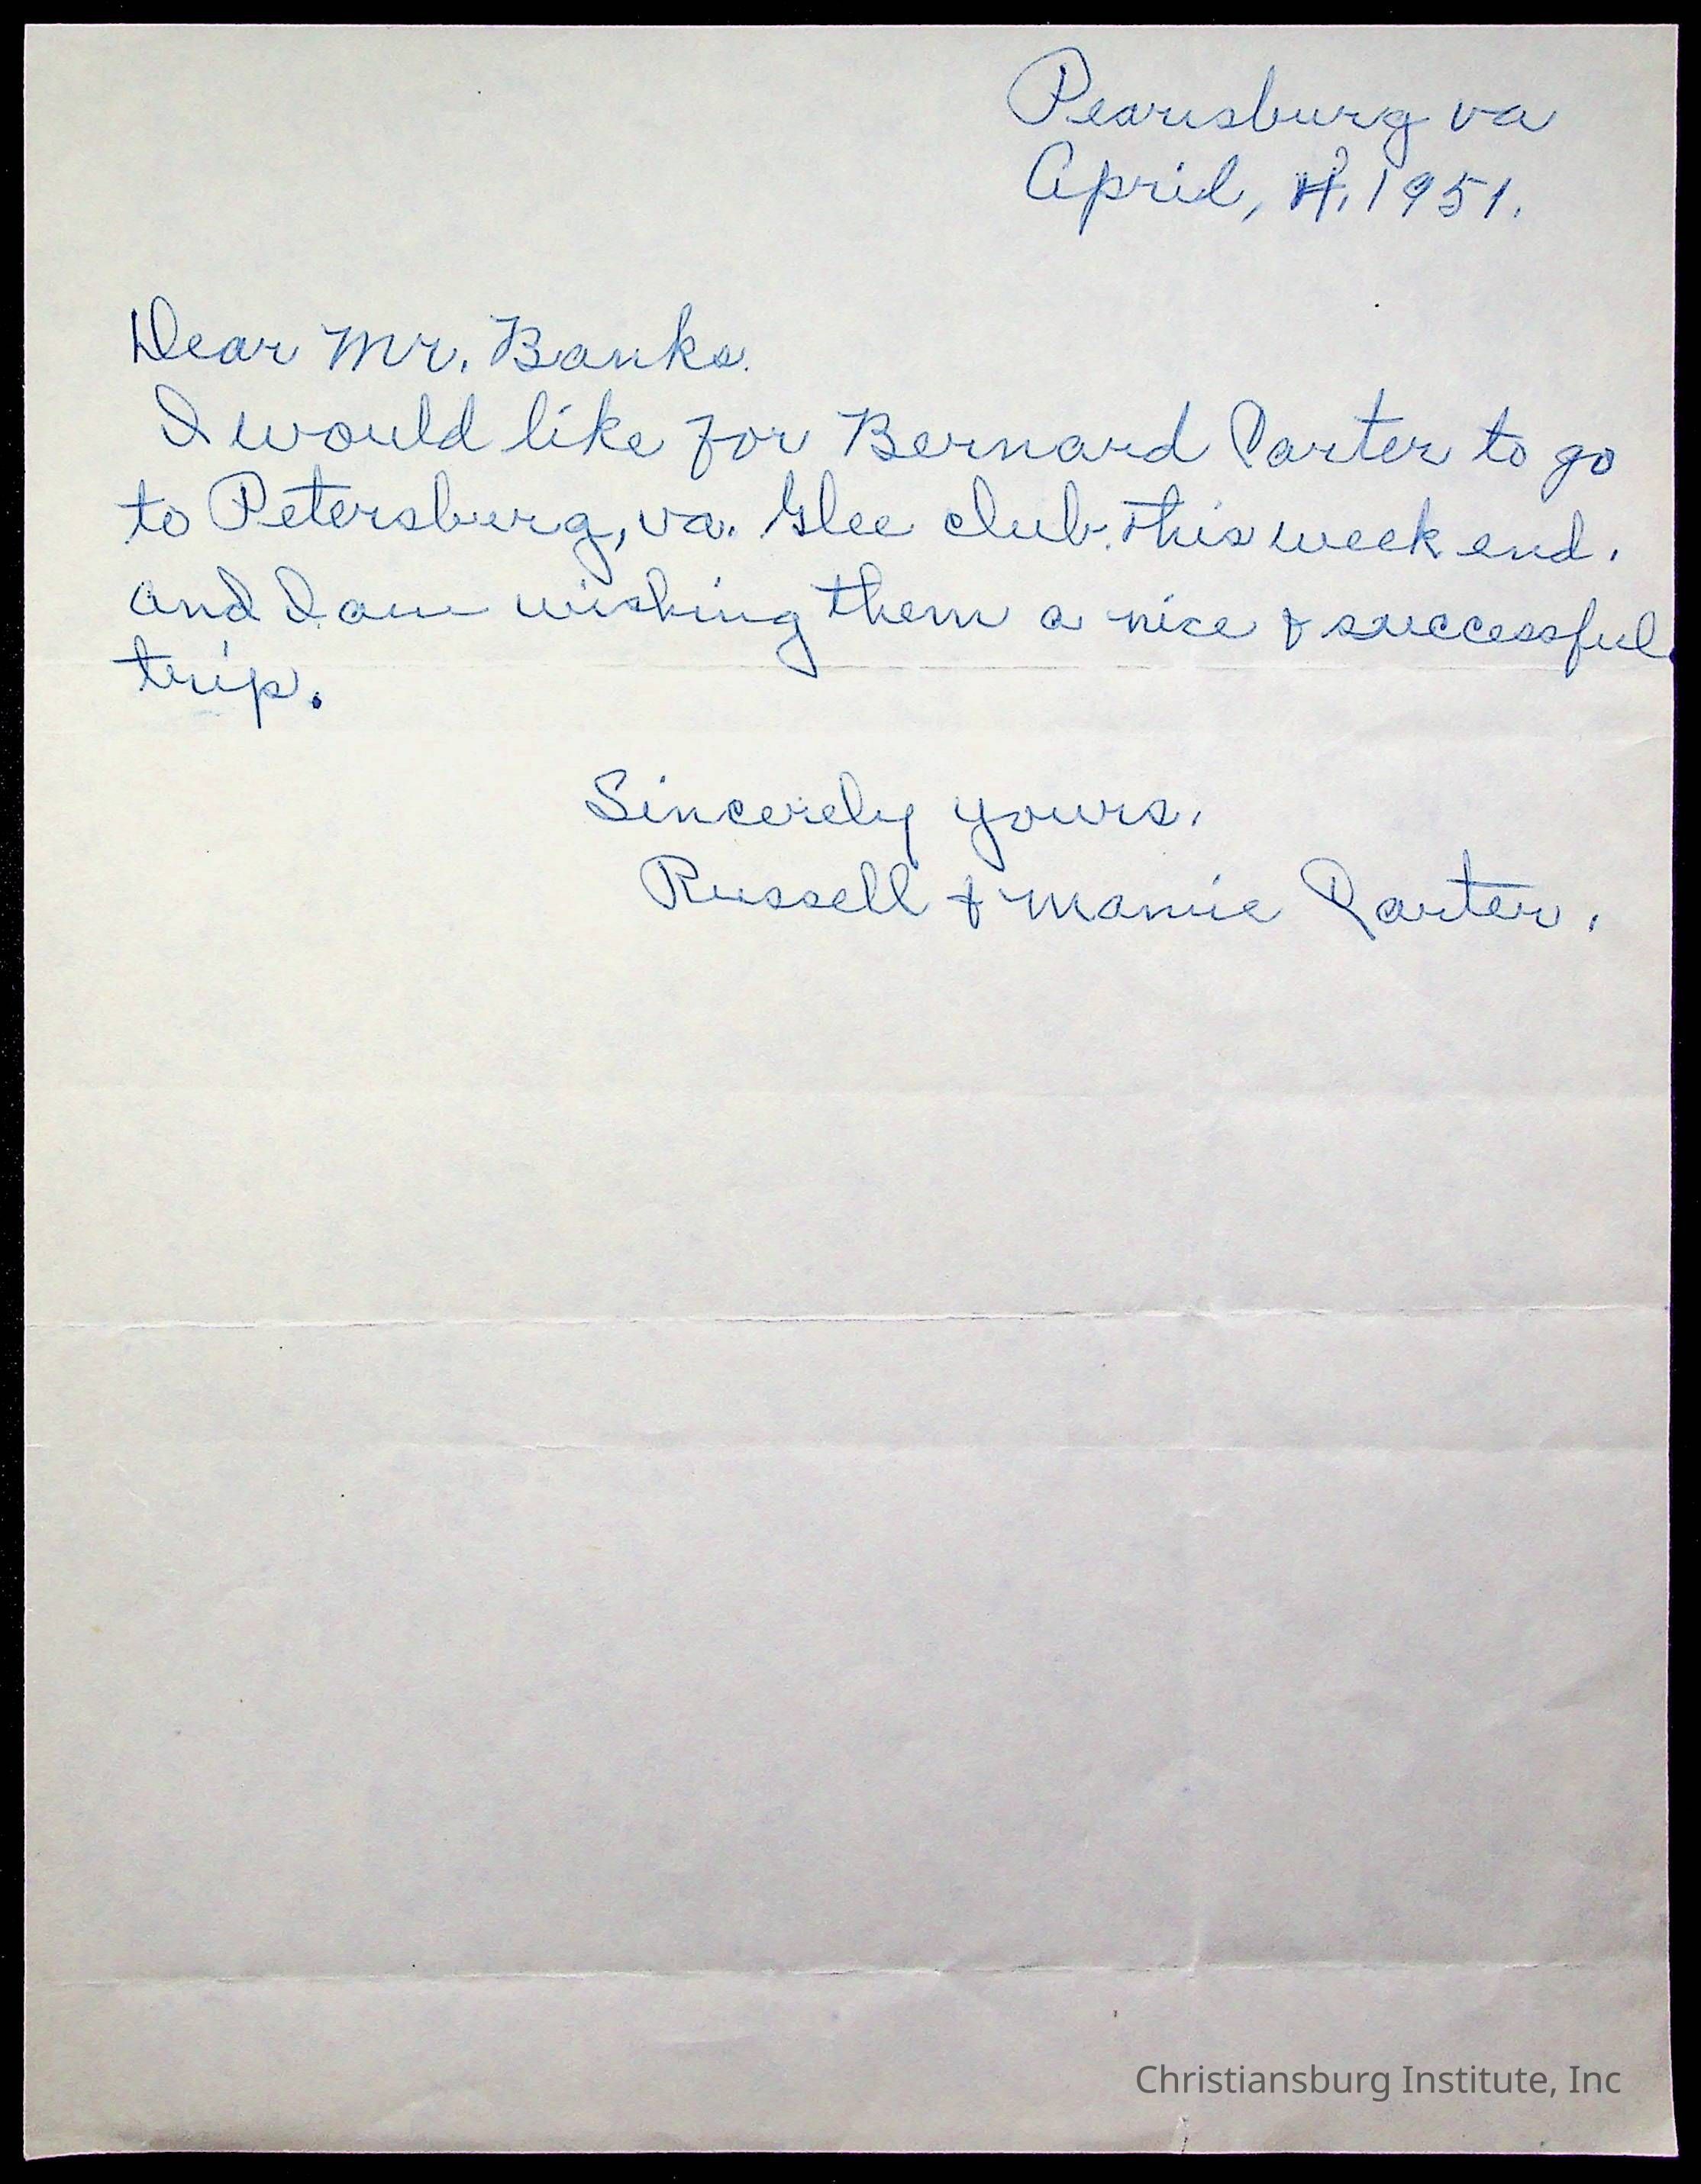 Pearisburg va
April, 4, 1951.
Dear Mr. Banks.
I would like for Bernard Parter to go
to Petersburg, va. Glee club. this week end.
and I am wishing them a nice & successful
trip.
Sincerely yours.
Russell & Mamie Parter.
Christiansburg Institute, Inc